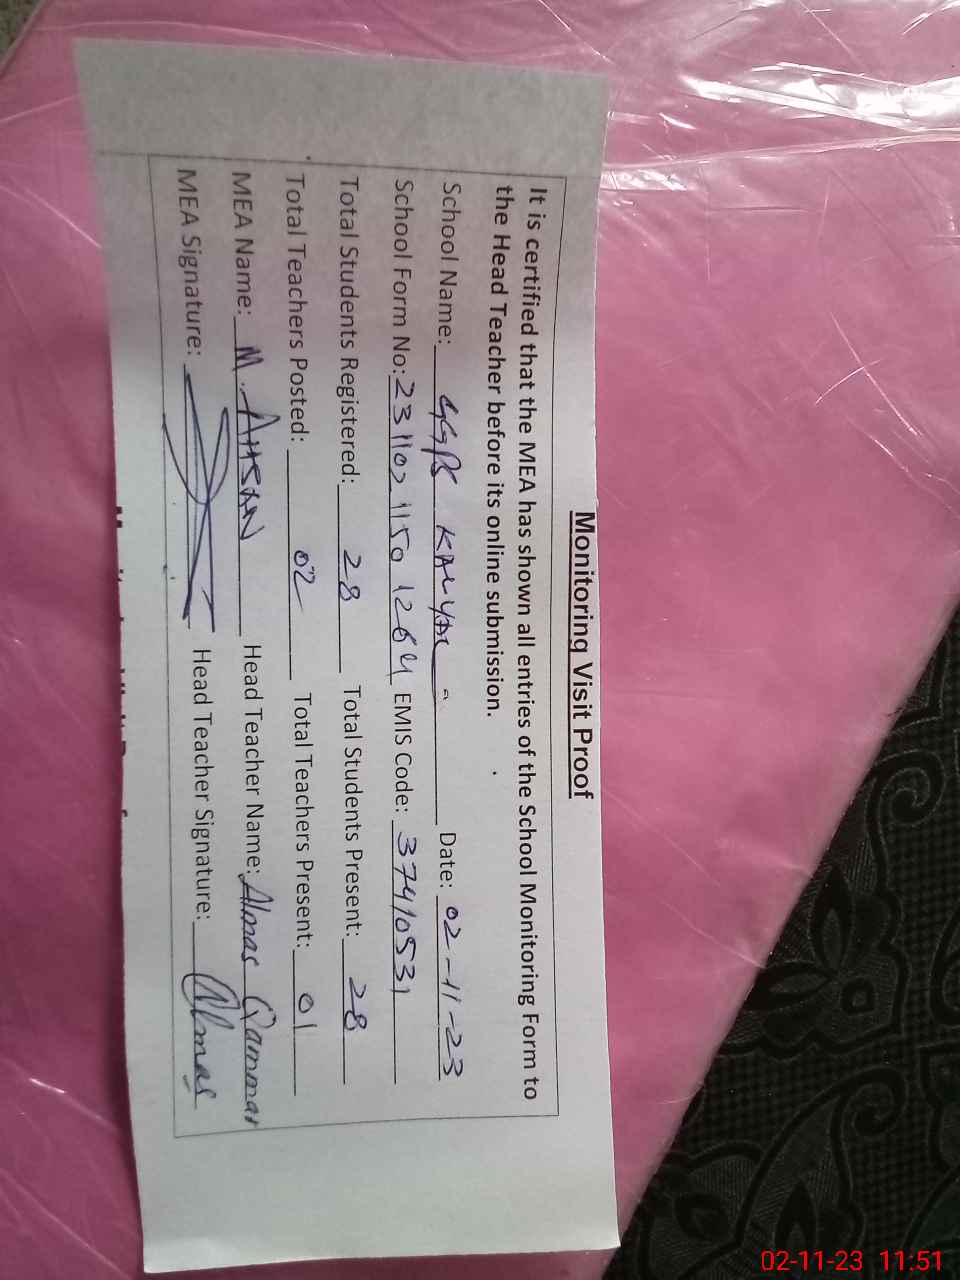 Monitoring Visit Proof
It is certified that the MEA has shown all entries of the School Monitoring Form to
the Head Teacher before its online submission.
School Name: GGPS Date: 02-11-23
School Form No: EMIS Code: 37410531
Total Students Registered: 28 Total Students Present: 28
Total Teachers Posted: 02 Total Teachers Present: 01
MEA Name: M. AHSAN Head Teacher Name: Almas Qammar
MEA Signature: Head Teacher Signature: Almas
02-11-23 11:51